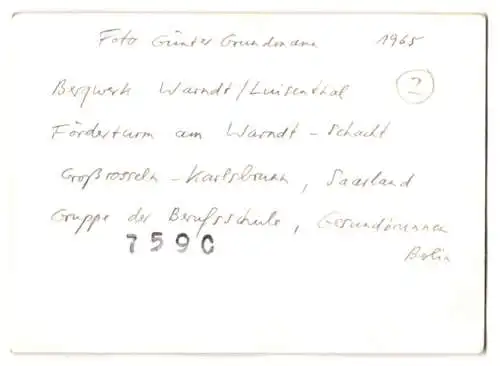 Foto Günter Grundmann 1965
Bergwerk Warndt/Luisenthal ?
Förderturm am Warndt-Schacht
Großrosseln-Karlsbrunn, Saarland
Gruppe der Berufsschule, Gesundbrunnen
7590
Berlin